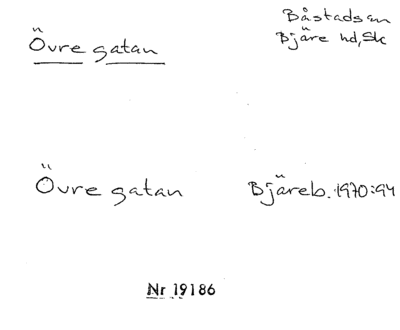 Övre gatan
Båstads sn
Bjäre hd, Sk
Övre gatan
Bjäreb. 1970:94
Nr 19186